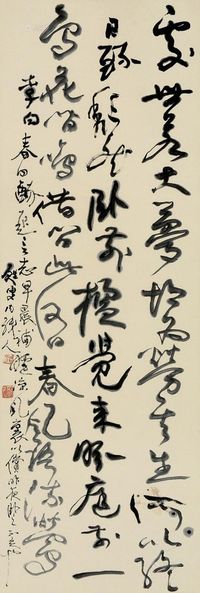 處世若大夢胡為勞其生所以終
日醉頹然臥前楹覺來眄庭前一
鳥花間鳴借問此何日春風語流鶯
李白春日醉起言志早晨